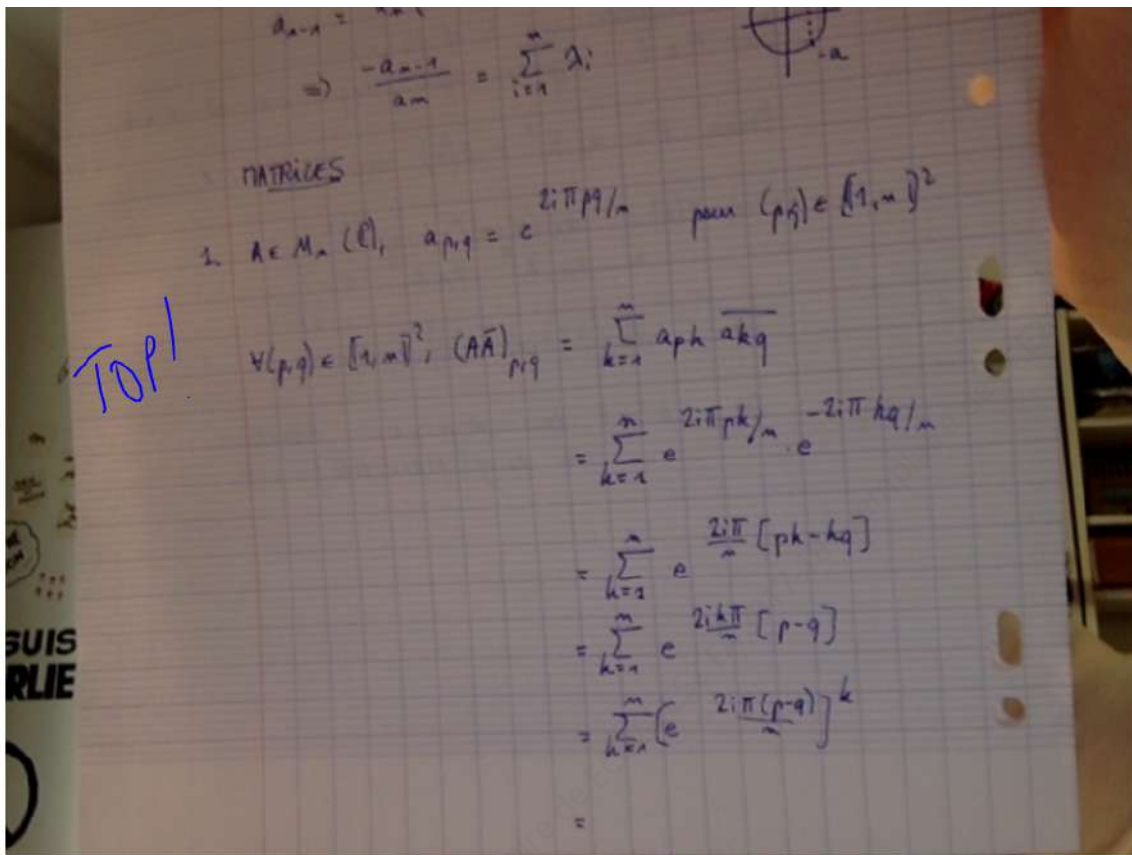 a_{n-1} =
⇒ -a_{n-1}/a_n = ∑_{i=1}^{n} λ_i
-a
MATRICES
1. A ∈ M_n(ℂ), a_{p,q} = e^{2iπpq/n} pour (p,q) ∈ ⟦1,n⟧²
TOP!
∀(p,q) ∈ ⟦1,n⟧², (AĀ)_{p,q} = ∑_{k=1}^{n} a_{pk} \overline{a_{kq}}
= ∑_{k=1}^{n} e^{2iπpk/n} . e^{-2iπkq/n}
= ∑_{k=1}^{n} e^{2iπ/n [pk-kq]}
= ∑_{k=1}^{n} e^{2ikπ/n [p-q]}
= ∑_{k=1}^{n} [e^{2iπ(p-q)/n}]^k
=
SUIS
RLIE